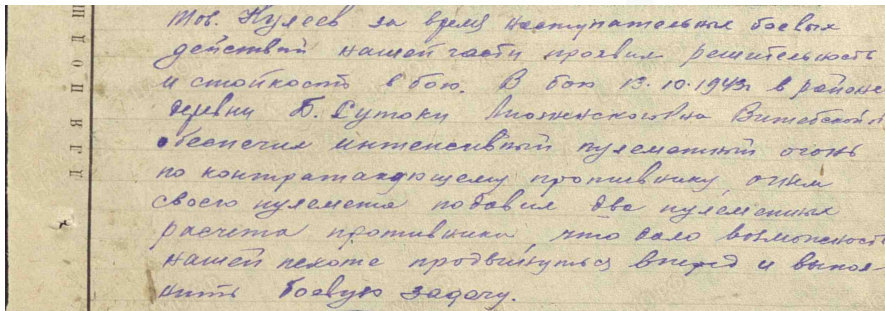 Тов. Кулеев за время наступательных боевых
действий нашей части проявил решительность
и стойкость в бою. В бою 13.10.1943г в районе
деревни Б. Сутоки Лиозненского р-на Витебской
обеспечил интенсивный пулеметный огонь
по контратакующему противнику, огнем
своего пулемета подавил два пулеметных
расчета противника, что дало возможность
нашей пехоте продвинуться вперед и выпол-
нить боевую задачу.